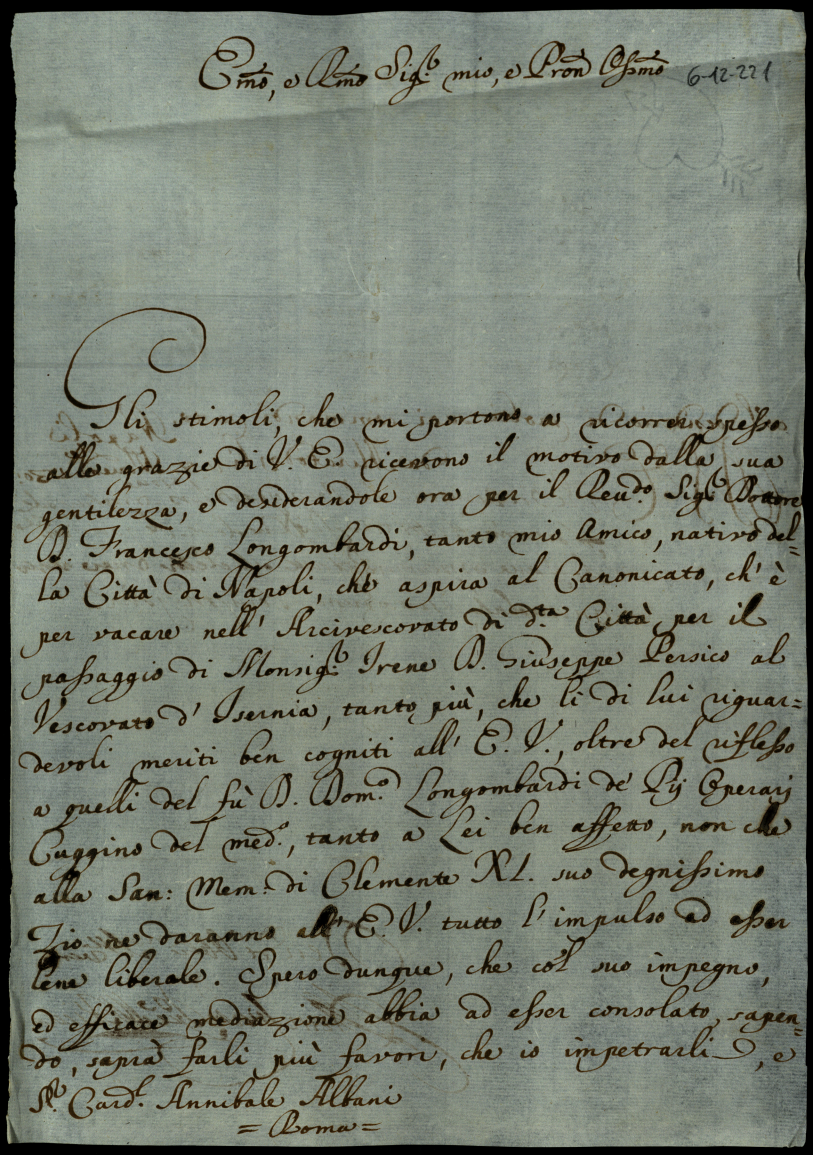 Emo, e Rmo Sig.r mio, e Pron Ossmo 6-12-221
Gli stimoli, che mi portono a ricorrer spesso
alle grazie di V. E. ricevono il motivo dalla sua
gentilezza, e desiderandole ora per il Reud.o Sig.r Dottore
D. Francesco Longombardi, tanto mio Amico, nativo del=
la Città di Napoli, chè aspira al Canonicato, ch' è
per vacare nell' Arcivescovato di d.ta Città per il
passaggio di Monsig.r Irene D. Giuseppe Persico al
Vescovato d' Isernia, tanto più, che li di lui riguar=
devoli meriti ben cogniti all' E. V., oltre del riflesso
a quelli del fù D. Dom.o Longombardi de' Pij Operarj
Cuggino del med.o, tanto a Lei ben affetto, non che
alla San: Mem: di Clemente XI. suo degnissimo
Zio ne daranno all' E. V. tutto l' impulso ad esser
lene liberale. Spero dunque, che col suo impegno,
ed efficace mediazione abbia ad esser consolato, sapen=
do, saprà farli più favori, che io impetrarli, e
S.r Card.l Annibale Albani
= Roma =